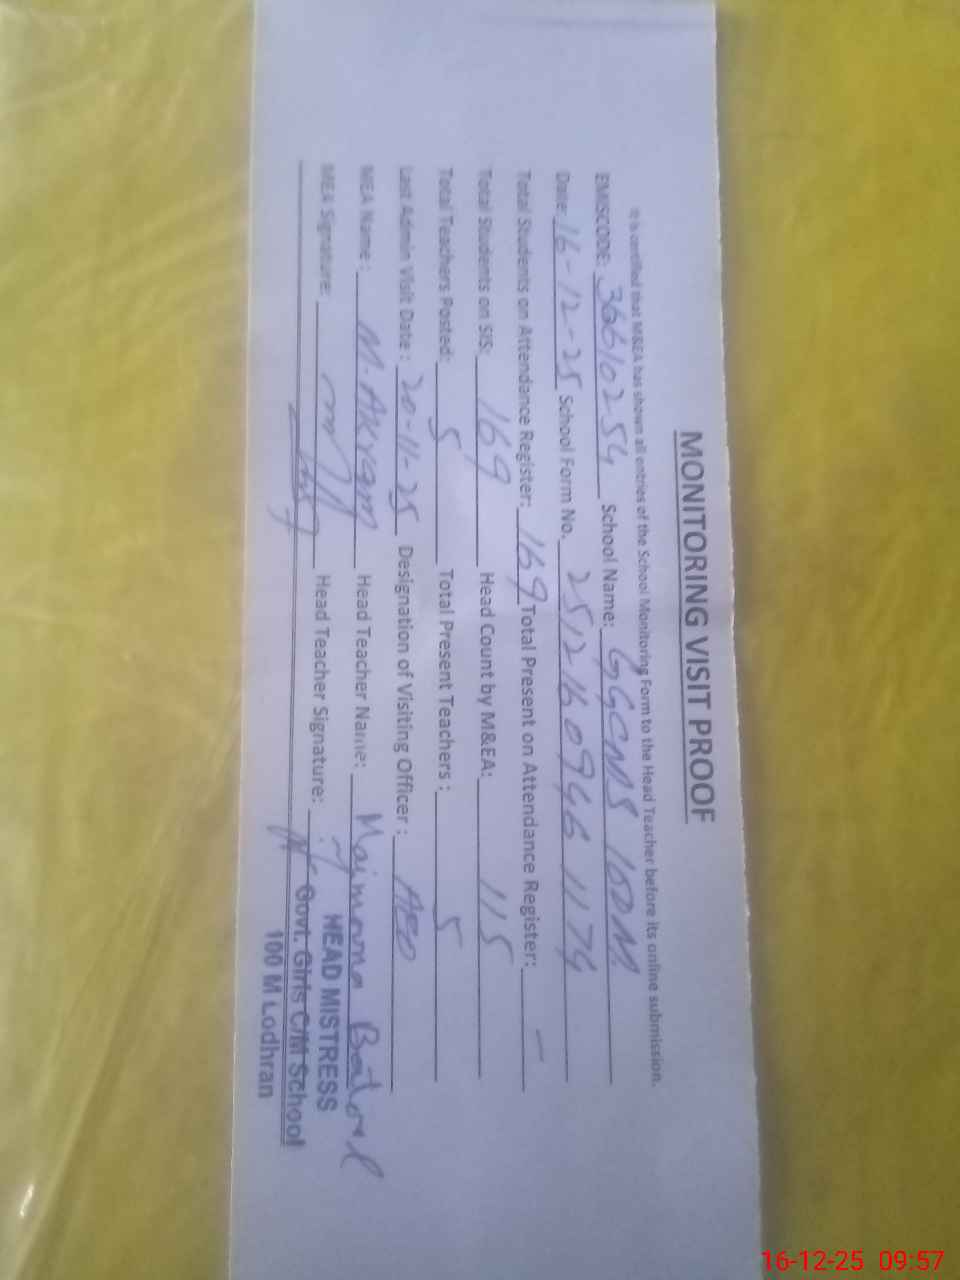 MONITORING VISIT PROOF
It is certified that M&EA has shown all entries of the School Monitoring Form to the Head Teacher before its online submission.
EMISCODE: 36610254 School Name: GGCMS 100M
Date: 16-12-25 School Form No. 2512160946 1174
Total Students on Attendance Register: 169 Total Present on Attendance Register: –
Total Students on SIS: 169 Head Count by M&EA: 115
Total Teachers Posted: 5 Total Present Teachers : 5
Last Admin Visit Date : 20-11-25 Designation of Visiting Officer : AEO
MEA Name : M. Akram Head Teacher Name: Maimoona Batool
MEA Signature: Head Teacher Signature:
HEAD MISTRESS
Govt. Girls C/M School
100 M Lodhran
16-12-25 09:57